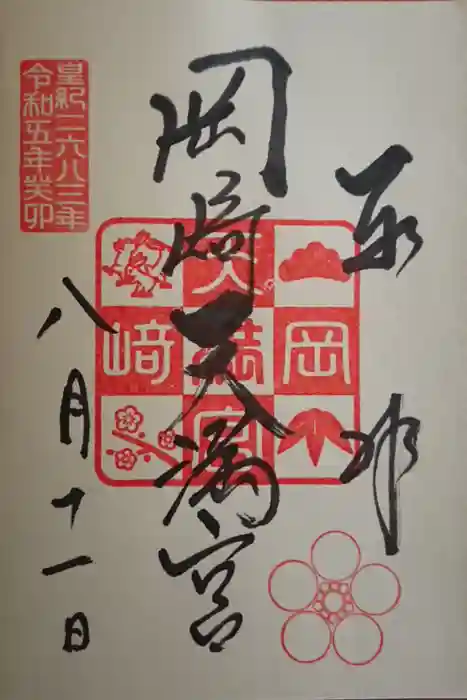 奉拝
岡﨑天満宮
八月十一日
皇紀二六八三年
令和五年癸卯
岡﨑
天満宮